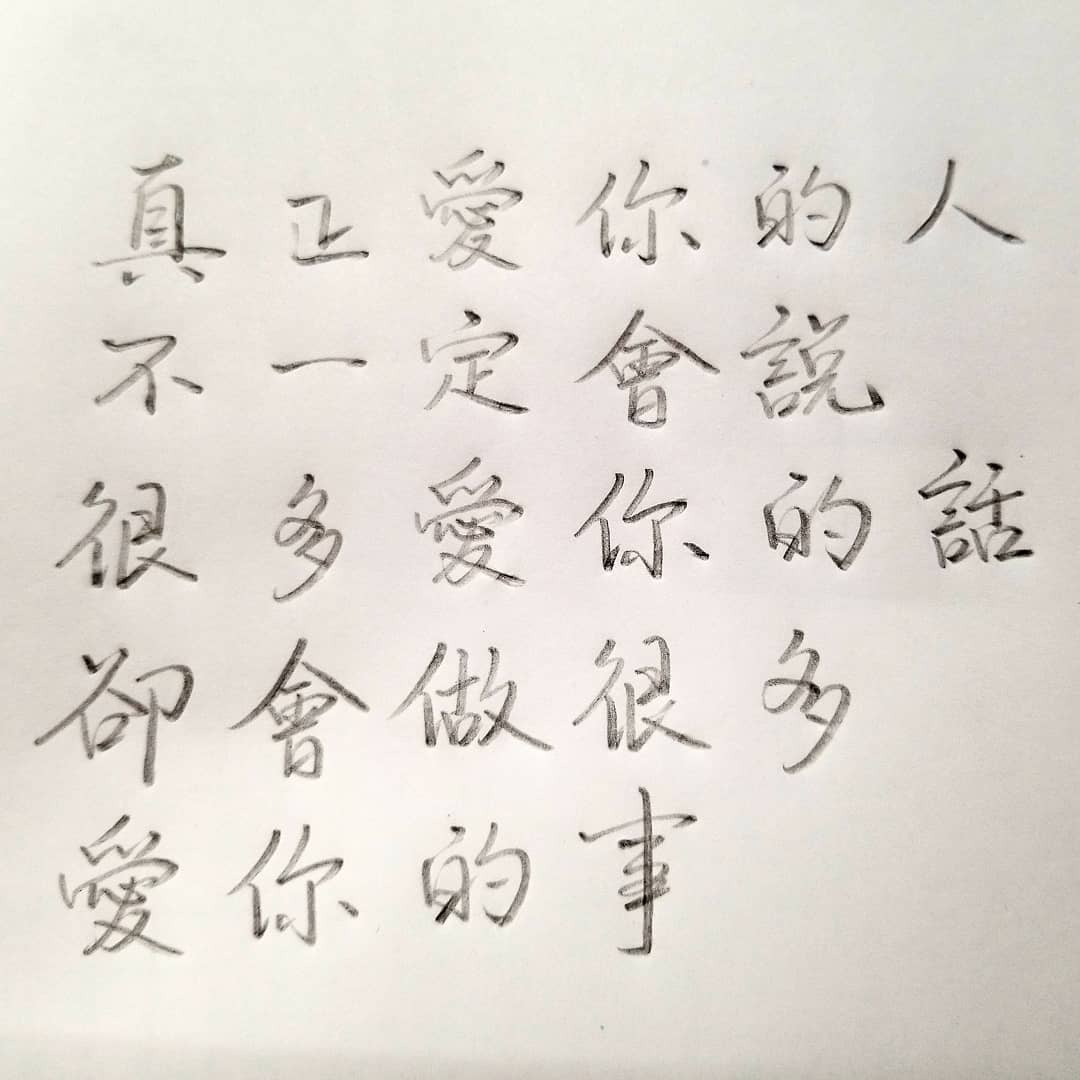 真正愛你的人
不一定會說
很多愛你的話
卻會做很多
愛你的事